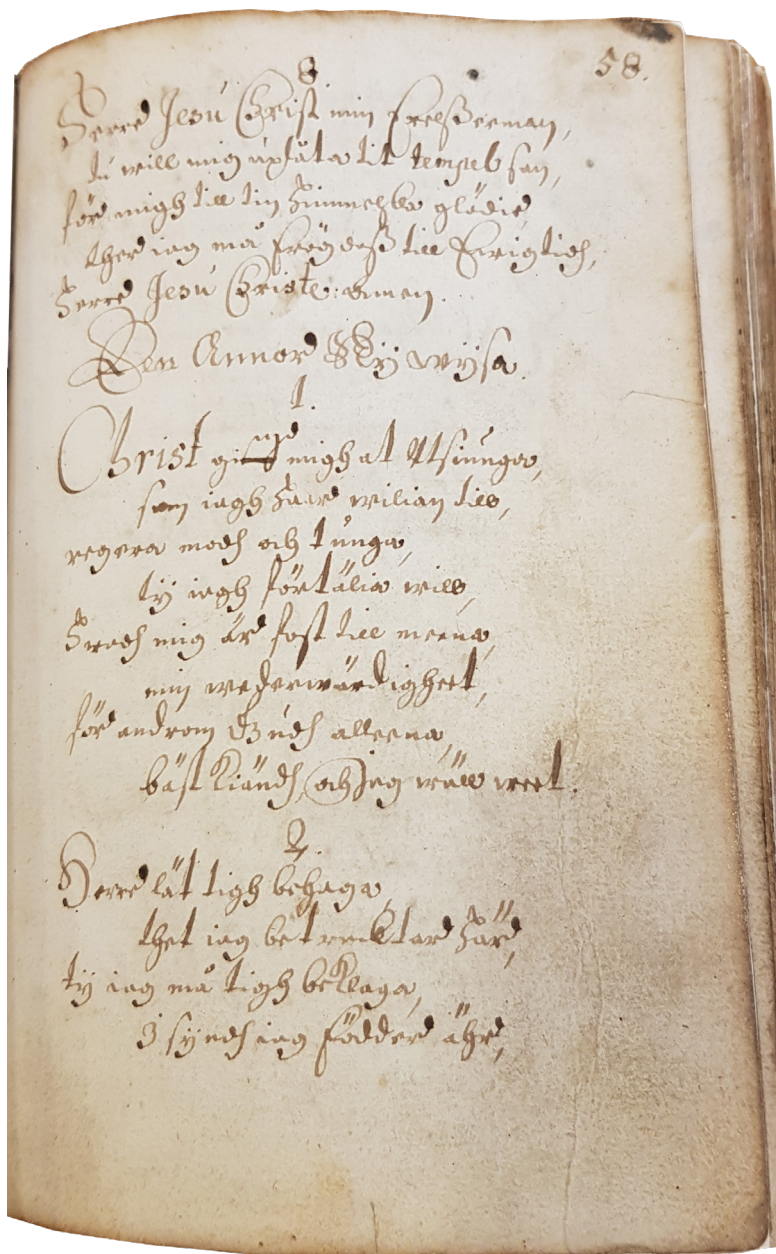 58.
8.
Herre Jesu Christ min Frelsserman,
tu will mig uplåta tit tempel san,
för migh till tin Himmelske glädie,
ther iag må frögdess till Ewigtidh,
Herre Jesu Christe: amen.
Den Annor Ny wijsa.
1.
Christ gif migh at Utsiunga,
som iagh haar wilian till,
regera modh och tunga,
ty iagh förtälia will,
Hwadh mig är fast till meena,
min wederwärdigheet,
för androm Gudh alleena,
bäst kiändh, och Jag wäll weet.
2.
Herre lät tigh behaga,
thet iag betrycktar här,
ty iag må tigh beklaga,
J syndh iag födder ähr,